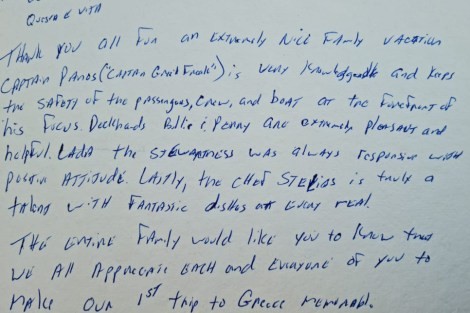 Questa è Vita
Thank you all for an extremely nice family vacation
Captain Panos ("Captain Greek Freak") is very knowledgeable and keeps
the safety of the passengers, crew, and boat at the forefront of
his focus. Deckhands & Penny are extremely pleasant and
helpful. Lada the stewardess was always responsive with
positive attitude. Lastly, the chef Stelios is truly a
talent with fantastic dishes at every meal.
The entire family would like you to know that
we all appreciate each and everyone of you to
make our 1st trip to Greece memorable.